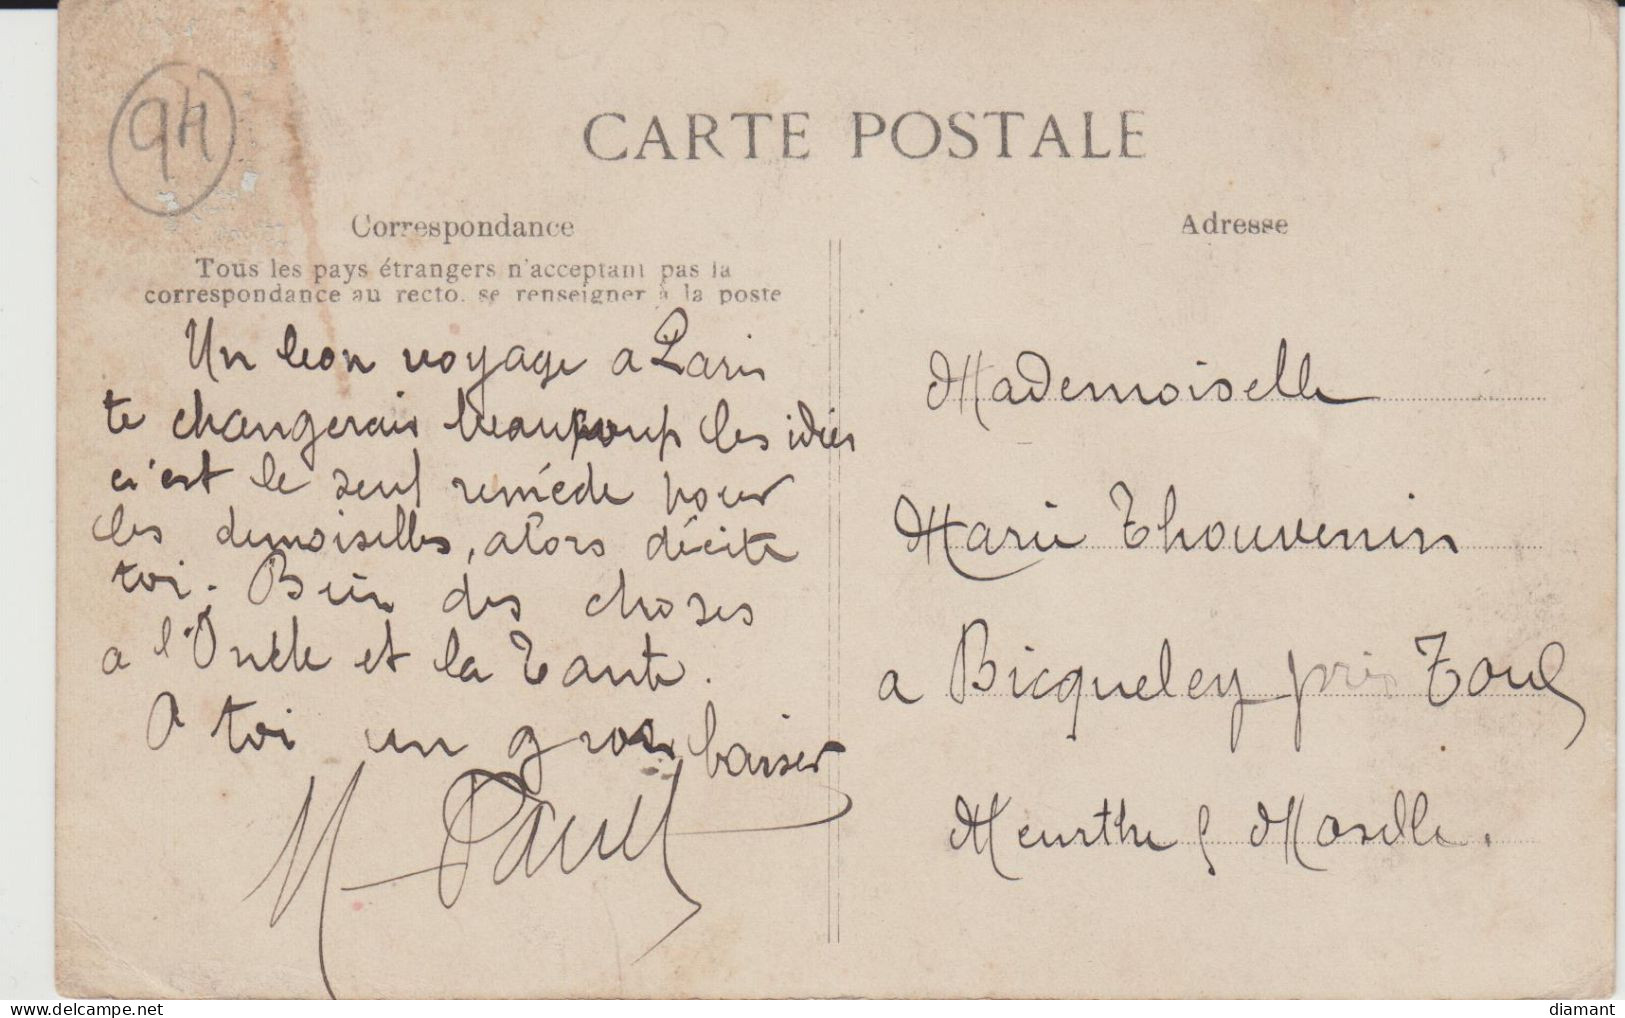 94
CARTE POSTALE
Correspondance
Tous les pays étrangers n'acceptant pas la
correspondance au recto. se renseigner à la poste
Un bon voyage a Paris
te changerais beaucoup les idées
c'est le seul remède pour
les demoiselles, alors décite
toi. Bein des choses
a l'Oncle et la Tante.
A toi un gros baiser
M Paul
Adresse
Mademoiselle
Marie Thouvenin
a Bicqueley près Toul
Meurthe & Moselle.
delcampe.net
diamant